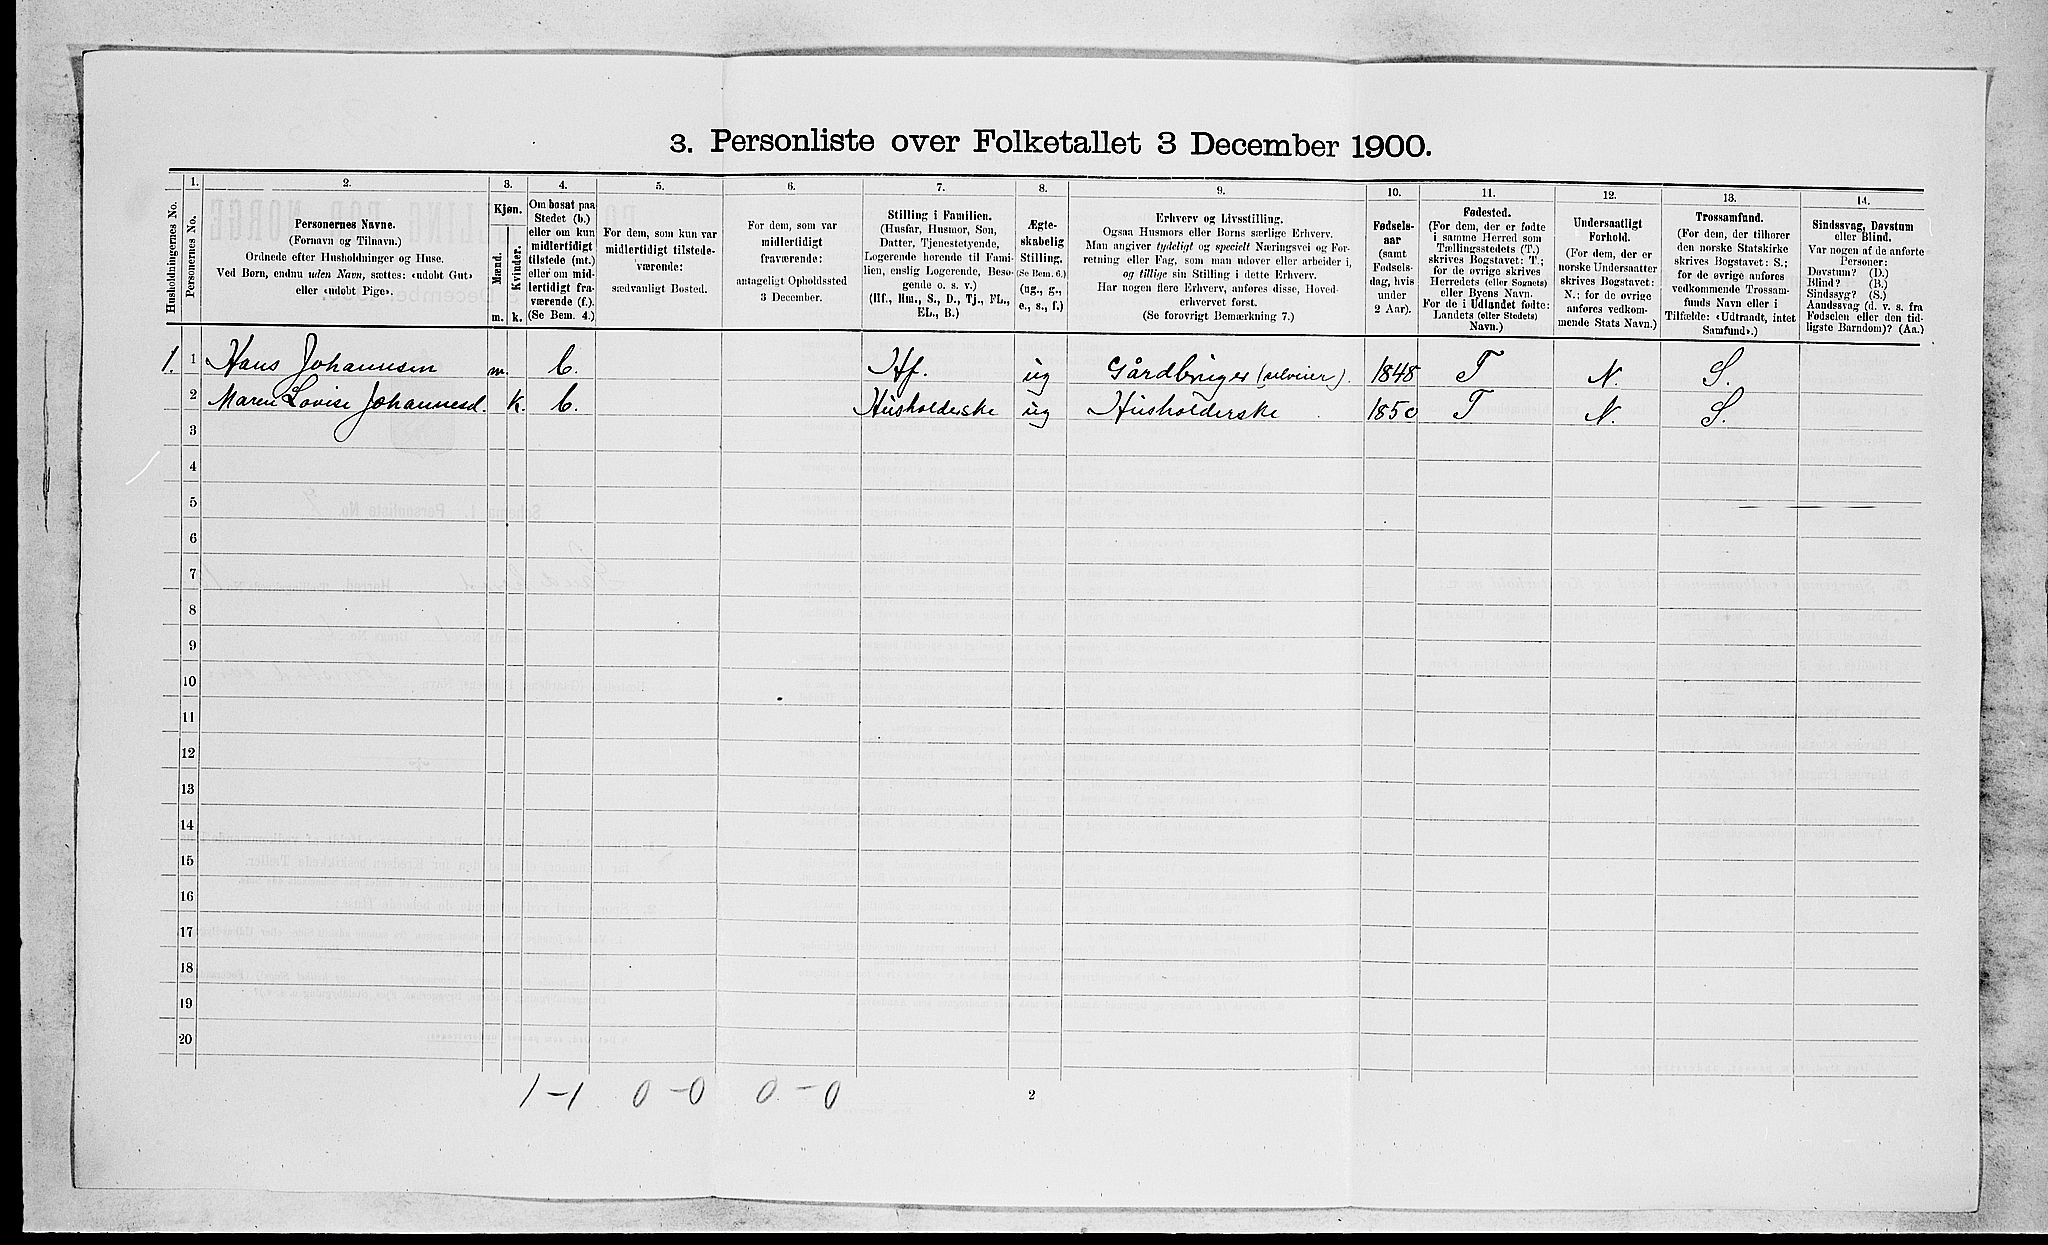 3. Personliste over Folketallet 3 December 1900.
1. 2. 3. 4. 5. 6. 7. 8. 9. 10. 11. 12. 13. 14.
Husholdningernes No.
Personernes No.
Personernes Navne.
(Fornavn og Tilnavn.)
Ordnede efter Husholdninger og Huse.
Ved Børn, endnu uden Navn, sættes: «udøbt Gut»
eller «udøbt Pige».
Kjøn.
Mænd.
Kvinder.
m. k.
Om bosat paa
Stedet (b.)
eller om kun
midlertidigt
tilstede (mt.)
eller om mid-
lertidigt fra-
værende (f.).
(Se Bem. 4.)
For dem, som kun var
midlertidigt tilstede-
værende:
sædvanligt Bosted.
For dem, som var
midlertidigt
fraværende:
antageligt Opholdssted
3 December.
Stilling i Familien.
(Husfar, Husmor, Søn,
Datter, Tjenestetyende,
Logerende hørende til Fami-
lien, enslig Logerende, Besø-
gende o. s. v.)
(Hf., Hm., S., D., Tj., FL.,
EL., B.)
Ægte-
skabelig
Stilling.
(Se Bem. 6.)
(ug., g.,
e., s., f.)
Erhverv og Livsstilling.
Ogsaa Husmors eller Børns særlige Erhverv.
Man angiver tydeligt og specielt Næringsvei og For-
retning eller Fag, som man udøver eller arbeider i,
og tillige sin Stilling i dette Erhverv.
Har nogen flere Erhverv, anføres disse, Hoved-
erhvervet først.
(Se forøvrigt Bemærkning 7.)
Fødsels-
aar
(samt
Fødsels-
dag, hvis
under
2 Aar).
Fødested.
(For dem, der er fødte
i samme Herred som
Tællingsstedets (T.)
skrives Bogstavet: T.;
for de øvrige skrives
Herredets (eller Sognets)
eller Byens Navn.
For de i Udlandet fødte:
Landets (eller Stedets)
Navn.)
Undersaatligt
Forhold.
(For dem, der er
norske Undersaatter
skrives Bogstavet:
N.; for de øvrige
anføres vedkom-
mende Stats Navn.)
Trossamfund.
(For dem, der tilhører
den norske Statskirke
skrives Bogstavet: S.;
for de øvrige anføres
vedkommende Trossam-
funds Navn eller i
Tilfælde: «Udtraadt, intet
Samfund».)
Sindssvag, Døvstum
eller Blind.
Var nogen af de anførte
Personer:
Døvstum? (D.)
Blind? (B.)
Sindssyg? (S.)
Aandssvag (d. v. s. fra
Fødselen eller den tid-
ligste Barndom)? (Aa.)
1. 1 Hans Johannsen m. b. Hf. ug Gårdbruger (selveier). 1848 T N. S.
2 Maren Lovise Johannesd. k. b. Husholderske ug Husholderske 1850 T N. S.
3
4
5
6
7
8
9
10
11
12
13
14
15
16
17
18
19
20
1-1 0-0 0-0
2